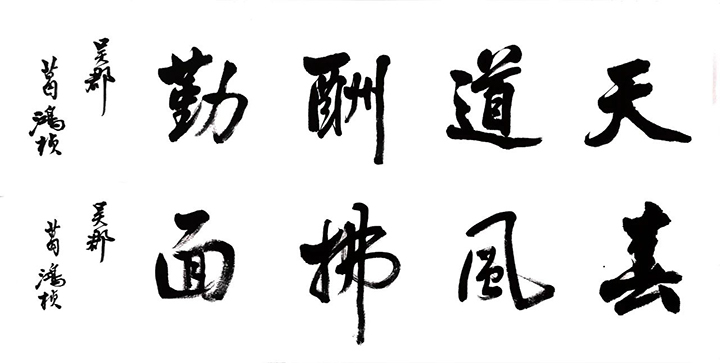 天道酬勤
吴郡
葛鴻楨
春風拂面
吴郡
葛鴻楨